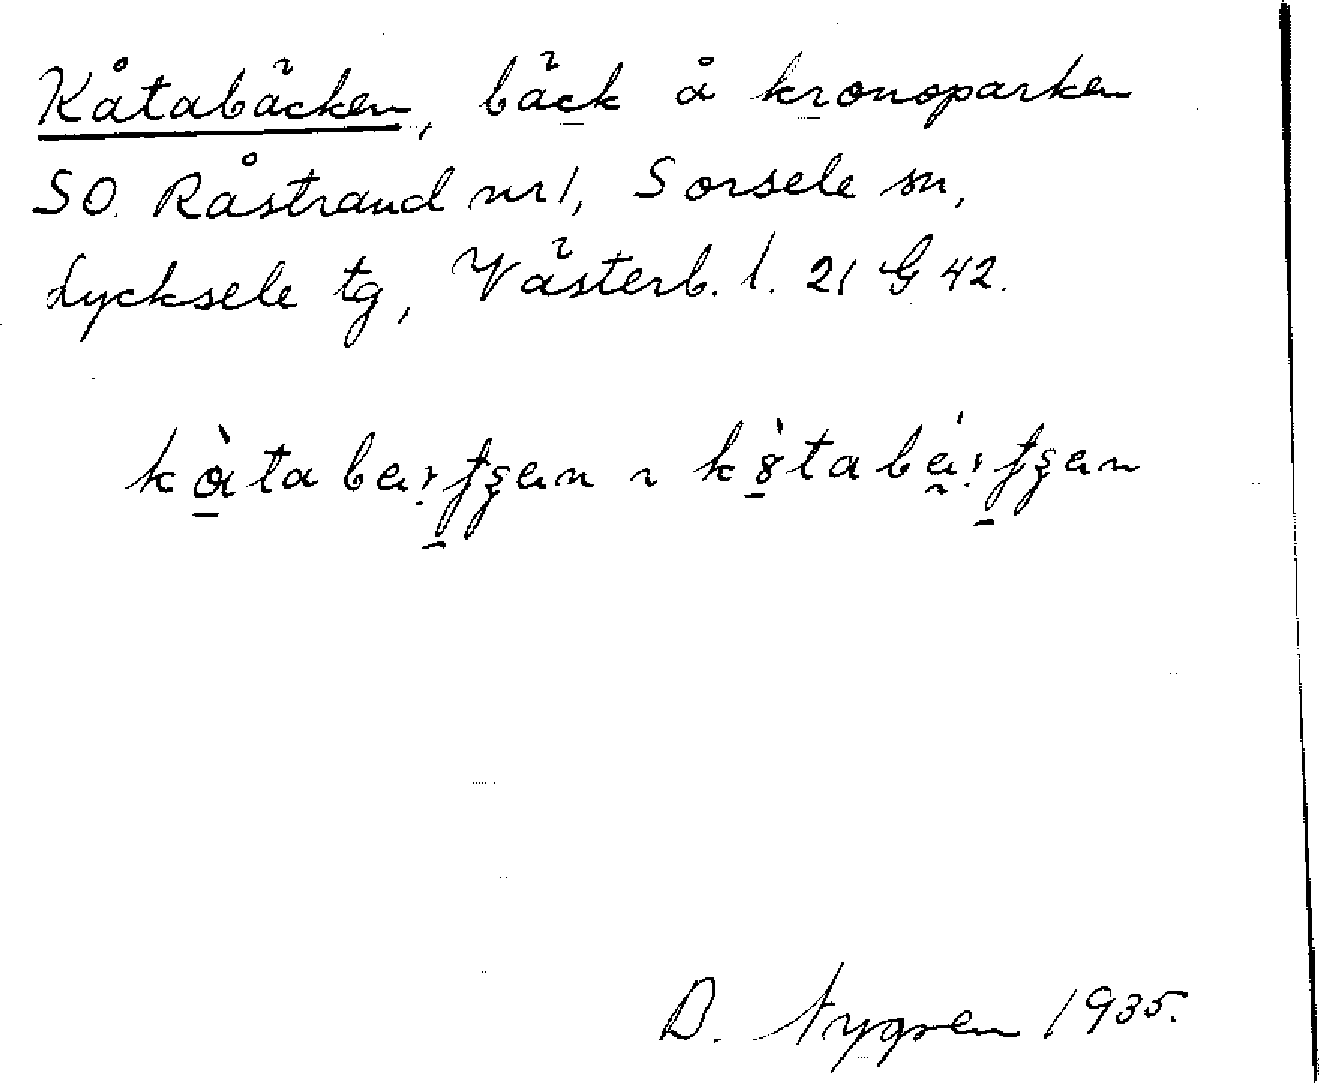 Kåtabäcken, bäck å kronoparken
SO. Råstrand nr 1, Sorsele sn,
Lycksele tg, Västerb. l. 21 G 42.
B. Nygren 1935.